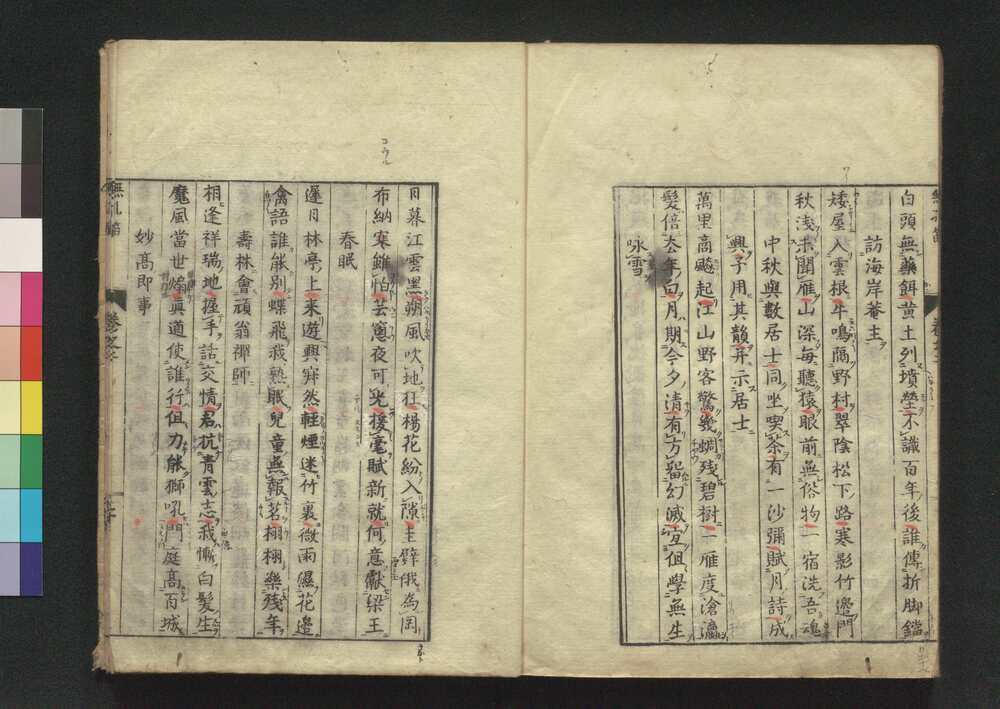 白頭無藥餌黄土列墳塋不識百年後誰傳折脚鐺
訪海岸菴主
矮屋入雲根牛鳴隔野村翠陰松下路寒影竹邊門
秋淺未聞雁山深每聽猿眼前無俗物一宿洗吾魂
中秋與數居士同坐喫茶有一沙彌賦月詩成
興予用其韻并示居士
萬里高飈起江山野客驚幾蜩殘碧樹一雁度滄瀛
髮倍去年白月期今夕清有方留幻滅宜伹學無生
咏雪
日暮江雲黑朔風吹地狂楊花紛入隙圭璧俄為岡
布納寒雖怕芸窓夜可光援毫賦新就何意獻梁王
春眠
遲日林亭上来遊興寂然輕煙迷竹裏微雨濕花邉
禽語誰能別蝶飛我熟眠兒童無報茗栩栩樂殘年
壽林會頑翁禪師
相逢祥瑞地握手話交情君抗青雲志我慚白髮生
魔風當世煽真道使誰行伹力能獅吼門庭髙百城
妙髙即事